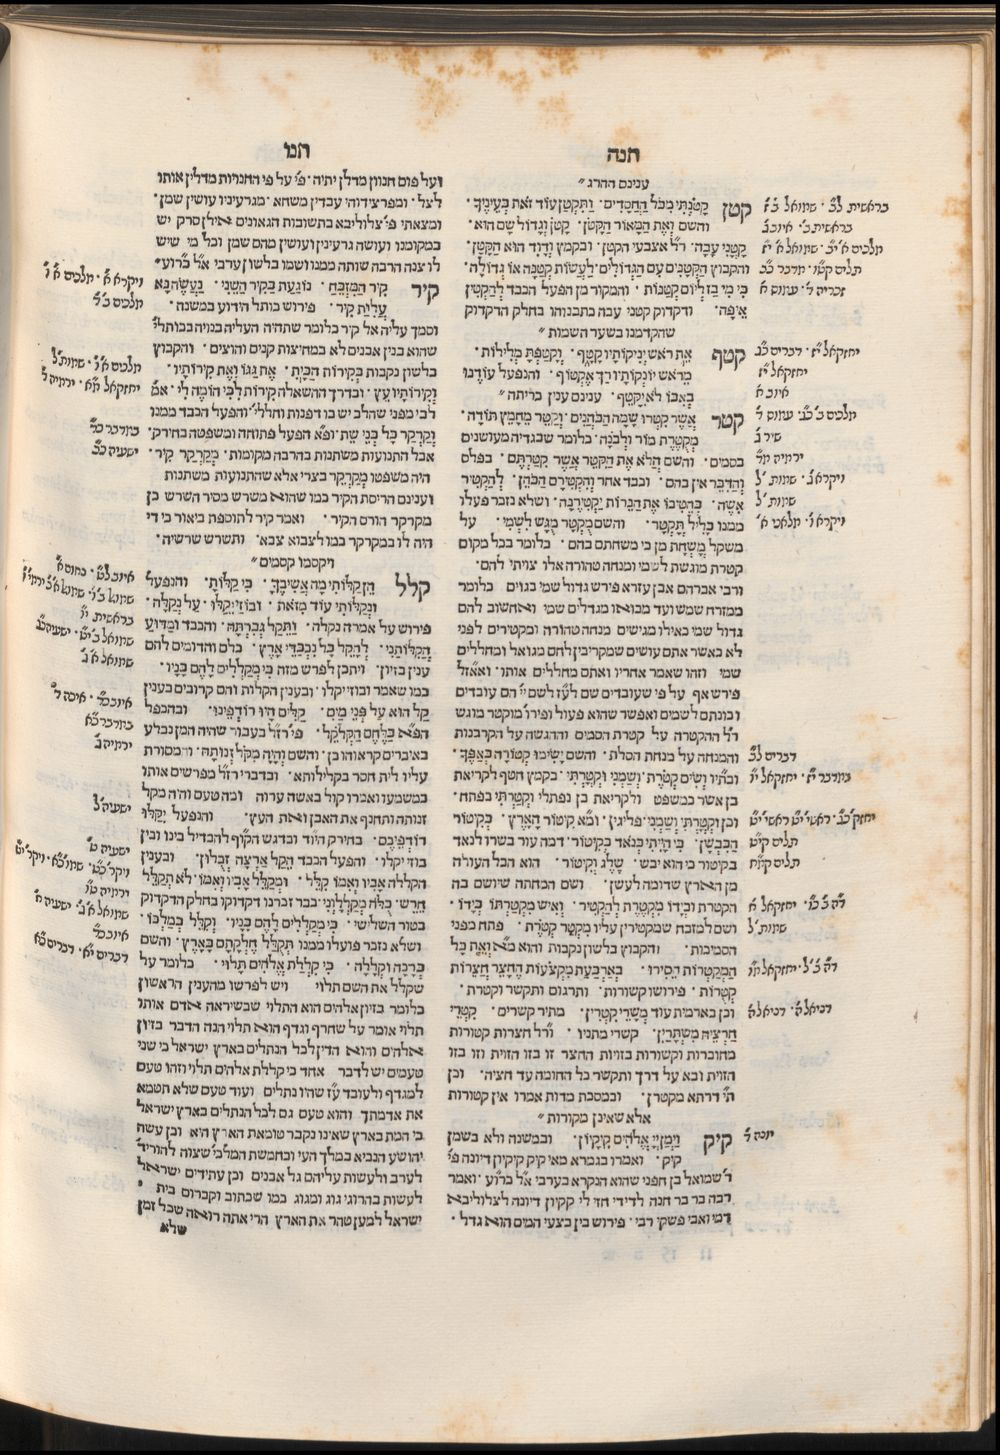 תנה
ענינם ההרג
קטן קָטֹנְתִּי מִכֹּל הַחֲסָדִים · וַתִּקְטַן עוֹד זֹאת בְּעֵינֶיךָ ·
והשם וְאֶת הַמָּאוֹר הַקָּטֹן · קָטֹן וְגָדוֹל שָׁם הוּא ·
קָטָנִּי עָבָה · רל אצבעי הקטן · ובקמץ וְדָוִד הוּא הַקָּטָן ·
והקבוץ הַקְּטַנִּים עִם הַגְּדוֹלִים · לַעֲשׂוֹת קְטַנָּה אוֹ גְדוֹלָה ·
כִּי מִי בַז לְיוֹם קְטַנּוֹת · והמקור מן הפעל הכבד לְהַקְטִין
אֵיפָה · ודקדוק קטני עבה בתבנוהו בחלק הדקדוק
שהקדמנו בשער השמות
קטף אֵת רֹאשׁ יְנִיקוֹתָיו קָטָף · וְקָטַפְתָּ מְלִילוֹת ·
מֵרֹאשׁ יוֹנְקוֹתָיו רַךְ אֶקְטוֹף · והנפעל עוֹדֶנּוּ
בְאִבּוֹ לֹא יִקָּטֵף · ענינם ענין כריתה
קטר אֲשֶׁר קִטְּרוּ שָׁמָּה הַכֹּהֲנִים · וְקַטֵּר מֵחָמֵץ תּוֹדָה ·
מְקֻטֶּרֶת מוֹר וּלְבֹנָה · כלומר שבגדיה מעושנים
בסמים · והשם הֲלֹא אֶת הַקִּטֵּר אֲשֶׁר קִטַּרְתֶּם · בפלס
וְהַדִּבֵּר אין בהם · וכבד אחר וְהִקְטִירָם הַכֹּהֵן · לְהַקְטִיר
אִשֶּׁה · בְּהֵטִיבוֹ אֶת הַנֵּרוֹת יַקְטִירֶנָּה · ושלא נזכר פעלו
ממנו כָּלִיל תָּקְטָר · והשם מֻקְטָר מֻגָּשׁ לִשְׁמִי · על
משקל מָשְׁחַת מן כי משחתם בהם · כלומר בכל מקום
קטרת מוגשת לשמי ומנחה טהורה אלו צויתי להם ·
ורבי אברהם אבן עזרא פירש גדול שמי בגוים כלומר
במזרח שמש ועד מבואו מגדלים שמי ואחשוב להם
גדול שמי כאילו מגישים מנחה טהורה ומקטירים לפני
לא כאשר אתם עושים שמקריבין לחם מגואל ומחללים
שמי וזהו שאמר אחריו ואתם מחללים אותו · ואאזל
פירש אף על פי שעובדים שם לעז לשם יי הם עובדים
וכונתם לשמים ואפשר שהוא פעול ופירו מוקטר מוגש
רל ההקטרה על קטרת הסמים וההגשה על הקרבנות
והמנחה על מנחת הסלת · והשם יָשִׂימוּ קְטוֹרָה בְּאַפֶּךָ ·
ובתיו וְשִׂים קְטֹרֶת · וְשַׁמְנִי וּקְטָרְתִּי · בקמץ חטף לקריאת
בן אשר כמשפט ולקריאת בן נפתלי וּקְטַרְתִּי בפתח ·
וכן וּקְטָרְתִּי וְשַׁמְנִי פליגין · ובא קִיטוֹר הָאָרֶץ · כְּקִיטוֹר
הַכִּבְשָׁן · כִּי הָיִיתִי כְּנֹאד בְּקִיטוֹר · דמה עור בשרו לנאד
בקיטור כי הוא יבש · שֶׁלֶג וְקִיטוֹר · הוא הכל העולה
מן הארץ שדומה לעשן · ושם המחתה שיושם בה
הקטרת וּבְיָדוֹ מִקְטֶרֶת לְהַקְטִיר · וְאִישׁ מִקְטַרְתּוֹ בְּיָדוֹ ·
ושם למזבח שמקטירין עליו מִקְטַר קְטֹרֶת · פתח מפני
הסמיכות · והקבוץ בלשון נקבות והוא מא וְאֵת כָּל
הַמְקַטְּרוֹת הֵסִירוּ · בְּאַרְבַּעַת מִקְצֹעוֹת הֶחָצֵר חֲצֵרוֹת
קְטֻרוֹת · פירושו קשורות · ותרגום ותקשר וקטרת ·
וכן בארמית עוד מְשָׁרֵי קִטְרִין · מתיר קשרים · קִטְרֵי
חַרְצֵיהּ מִשְׁתָּרַיִן · קשרי מתניו · ורל חצרות קטורות
מחוברות וקשורות בזויות החצר זו בזו הזוית וזו בזו
הזוית ובא על דרך ותקשר כל החומה עד חציה · וכן
תי דרתא מקטרן · ובמסכת מדות אמרו אין קטורות
אלא שאינן מקורות
קיק וַיְמַן יְיָ אֱלֹהִים קִיקָיוֹן · ובמשנה ולא בשמן
קיק · ואמרו בגמרא מאי קיק קיקיון דיונה פי
רשמואל בן חפני שהוא הנקרא בערבי אל כרוע · ואמר
רבה בר בר חנה לדידי חזי לי קקיון דיונה לצלוליבא
דמי ואבי פשקי רבי · פירוש בין בצעי המים הוא גדל ·
בראשית לב · שמואל בז
בראשית כ · איוב ג
מלכים איב · שמואל איז
תלים קטו · מדבר כב
זכריה ד · עמוס ח
יחזקאל יז · דברים כג
יחזקאל יז
איוב ח
מלכים בכג · עמוס ד
שיר ג
ירמיה מד
ויקרא ב · שמות ל
שמות ל
ויקרא ו · מלאכי א
דברים לג
במדבר יז · יחזקאל יו
תלים קיט
תלים קמח
יחזקאל ח
שמות ל
דניאל ה · דניאל ה
יונה ד
תנו
ועל פום חנוון מדלן יתיה · פי על פי החנויות מדלין אותו
לצל · ומפרצידוהי עבדין משחא · מגרעיניו עושין שמן ·
ומצאתי פי צלוליבא בתשובות הגאונים אילן סרק יש
במקומנו ועושה גרעינין ועושין מהם שמן וכל מי שיש
לו צנה הרבה שותה ממנו ושמו בלשון ערבי אל כרוע
קיר קִיר הַמִּזְבֵּחַ · נוֹגַעַת בַּקִּיר הַשֵּׁנִי · נַעֲשֶׂה נָּא
עֲלִיַּת קִיר · פירוש כותל הידוע במשנה ·
וסמך עליה אל קיר כלומר שתהיה העליה בנויה בכותלי
שהוא בנין אבנים לא במחיצות קנים והוצים · והקבוץ
בלשון נקבות בְּקִירוֹת הַבַּיִת · אֶת גַּגּוֹ וְאֶת קִירוֹתָיו ·
וְקִירוֹתָיו עֵץ · ובדרך ההשאלה קִירוֹת לִבִּי הוֹמֶה לִּי · אמ
לבי מפני שהלב יש בו דפנות וחללי והפעל הכבד ממנו
וְקַרְקַר כָּל בְּנֵי שֵׁת · ופא הפעל פתוחה ומשפטה בחירק ·
אבל התנועות משתנות בהרבה מקומות · מְקַרְקַר קִיר ·
היה משפטו מקרקר בצרי אלא שהתנועות משתנות
וענינם הריסת הקיר כמו שהוא משרש מסיר השרש כן
מקרקר הורס הקיר · ואמר קיר לתוספת ביאור כי די
היה לו במקרקר כמו לצבוא צבא · ותשרש שרשיה ·
ויקסמו קסמים
קלל הֵן קַלּוֹתִי מָה אֲשִׁיבֶךָּ · כִּי קַלּוֹתָ · והנפעל
וּנְקַלּוֹתִי עוֹד מִזֹּאת · וּבוֹזַי יֵקָלּוּ · עַל נְקַלָּה ·
פירוש על אמרה נקלה · וַתֵּקַל גְּבִרְתָּהּ · והכבד וּמַדּוּעַ
הֱקִלֹּתַנִי · לְהָקֵל כָּל נִכְבַּדֵּי אָרֶץ · כלם והדומים להם
ענין בזיון · ויתכן לפרש מזה כִּי מְקַלְלִים לָהֶם בָּנָיו ·
כמו שאמר ובוזי יקלו · ובענין הקלות והם קרובים בענין
קַל הוּא עַל פְּנֵי מַיִם · קַלִּים הָיוּ רוֹדְפֵינוּ · ובהכפל
הפא בַּלֶּחֶם הַקְּלֹקֵל · פי רזל בעבור שהיה המן נבלע
באיברים קראוהו כן · והשם וְהָיָה מִקֹּל זְנוּתָהּ · והמסורת
עליו לית חסר בקלילותא · ובדברי רזל מפרשים אותו
במשמעו ואמרו קול באשה ערוה ומה טעם והיה מקל
זנותה ותחנף את האבן ואת העץ · והנפעל יִקַּלּוּ
רוֹדְפֵיכֶם · בחירק היוד ובדגש הקוף להבדיל בינו ובין
בוזי יקלו · והפעל הכבד הֵקַל אַרְצָה זְבֻלוּן · ובענין
הקללה אָבִיו וְאִמּוֹ קִלֵּל · וּמְקַלֵּל אָבִיו וְאִמּוֹ · לֹא תְקַלֵּל
חֵרֵשׁ · כֻּלֹּה מְקַלְלַוְנִי · כבר זכרנו דקדוקו בחלק הדקדוק
בטור השלישי · כִּי מְקַלְלִים לָהֶם בָּנָיו · וְקִלֵּל בְּמַלְכּוֹ ·
ושלא נזכר פועלו ממנו תְּקֻלַּל חֶלְקָתָם בָּאָרֶץ · והשם
בְּרָכָה וּקְלָלָה · כִּי קִלְלַת אֱלֹהִים תָּלוּי · כלומר על
שקלל את השם תלוי ויש לפרשו מהענין הראשון
כלומר בזיון אלהים הוא התלוי שבשיראה אדם אותו
תלוי אומר על שחרף וגדף הוא תלוי הנה הדבר בזיון
אלהים והוא הדין לכל הנתלים בארץ ישראל כי שני
טעמים יש לדבר אחד כי קללת אלהים תלוי וזהו טעם
למגדף ולעובד עז שהיו נתלים ועוד טעם שלא תטמא
את אדמתך והוא טעם גם לכל הנתלים בארץ ישראל
כי המת בארץ שאינו נקבר טומאת הארץ היא וכן עשה
יהושע הנביא במלך העי ובחמשת המלכי שצוה להוריד
לערב ולעשות עליהם גל אבנים וכן עתידים ישראל
לעשות בהרוגי גוג ומגוג כמו שכתוב וקברום בית
ישראל למען טהר את הארץ הרי אתה רואה שכל זמן
שלא
ויקרא א · מלכים א ו
מלכים ב ד
מלכים א ו · שמות ל
יחזקאל מא · ירמיה ד
במדבר כד
ישעיה כב
בראשית יו
שמואל א ג
איוב כד · איכה ד
במדבר כא
ירמיה ג
ישעיה ל
ישעיה ט
ירמיה טו
איוב כד